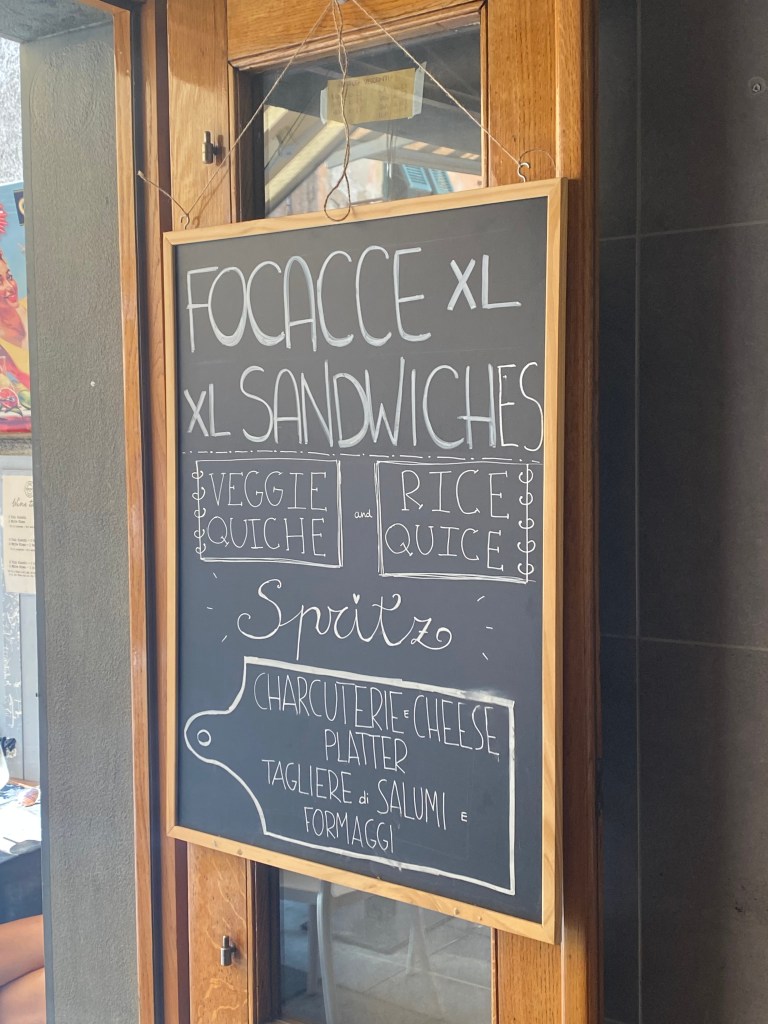 FOCACCE XL
XL SANDWICHES
VEGGIE
QUICHE
and
RICE
QUICE
Spritz
CHARCUTERIE E CHEESE
PLATTER
TAGLIERE di SALUMI E
FORMAGGI